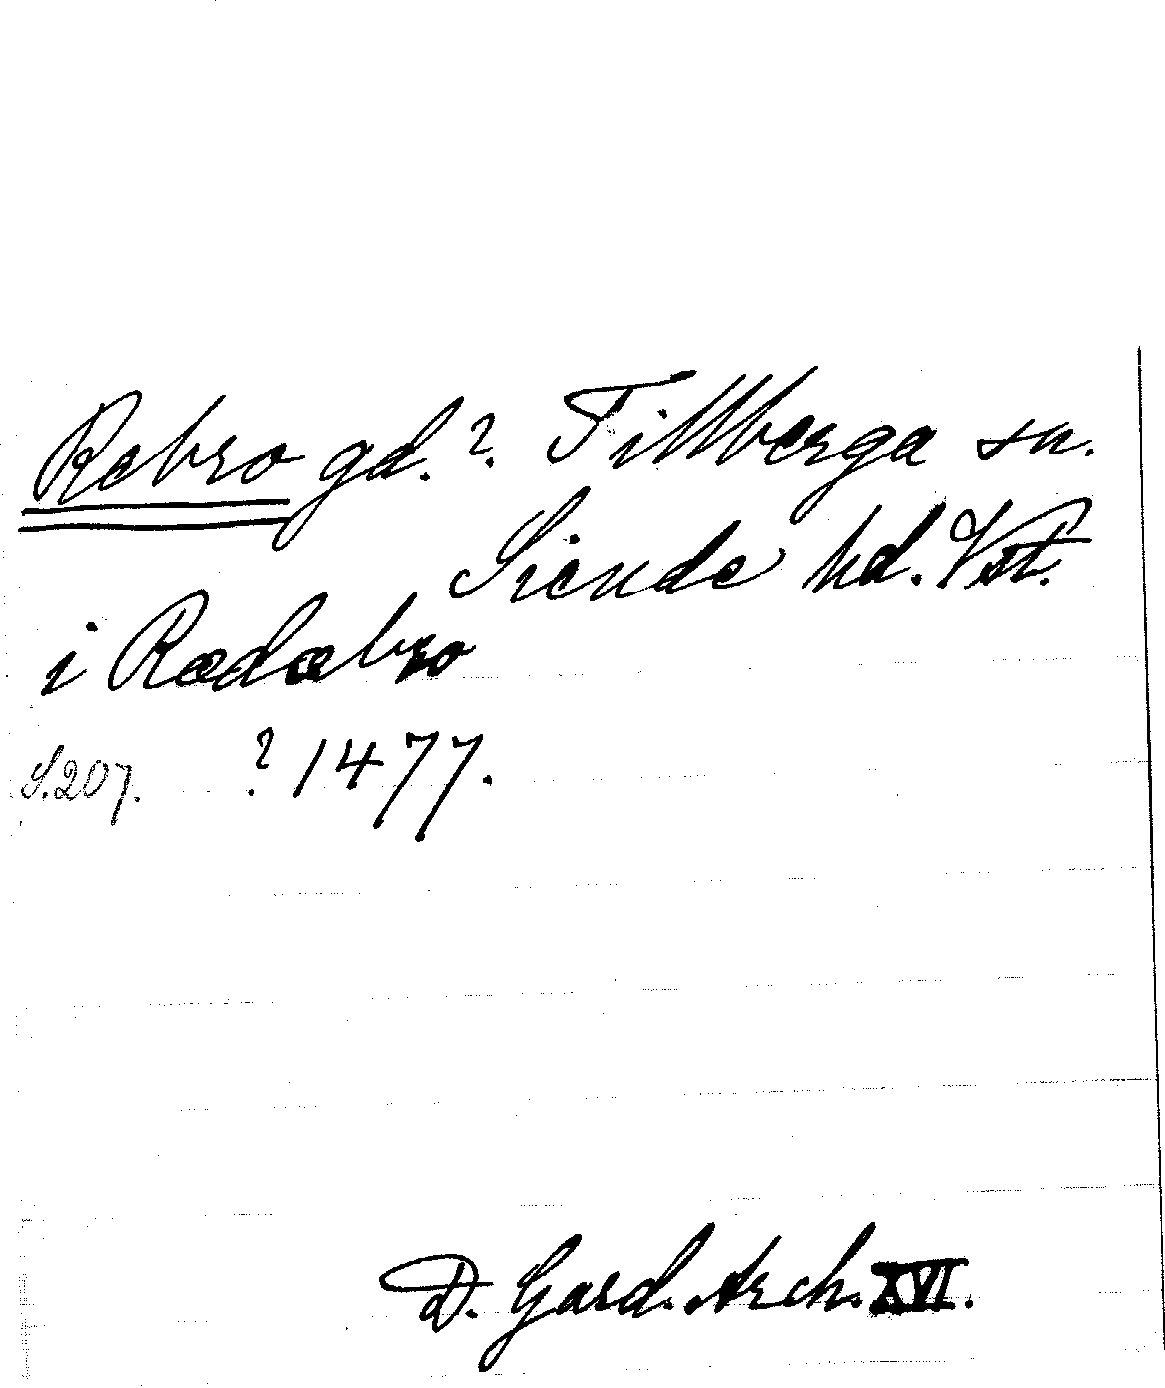 Rebro gd.? Tillberga sn.
Siende hd. Vst.
i Rædæbro
S.207. ? 1477.
D. Gard. Arch. XVI.